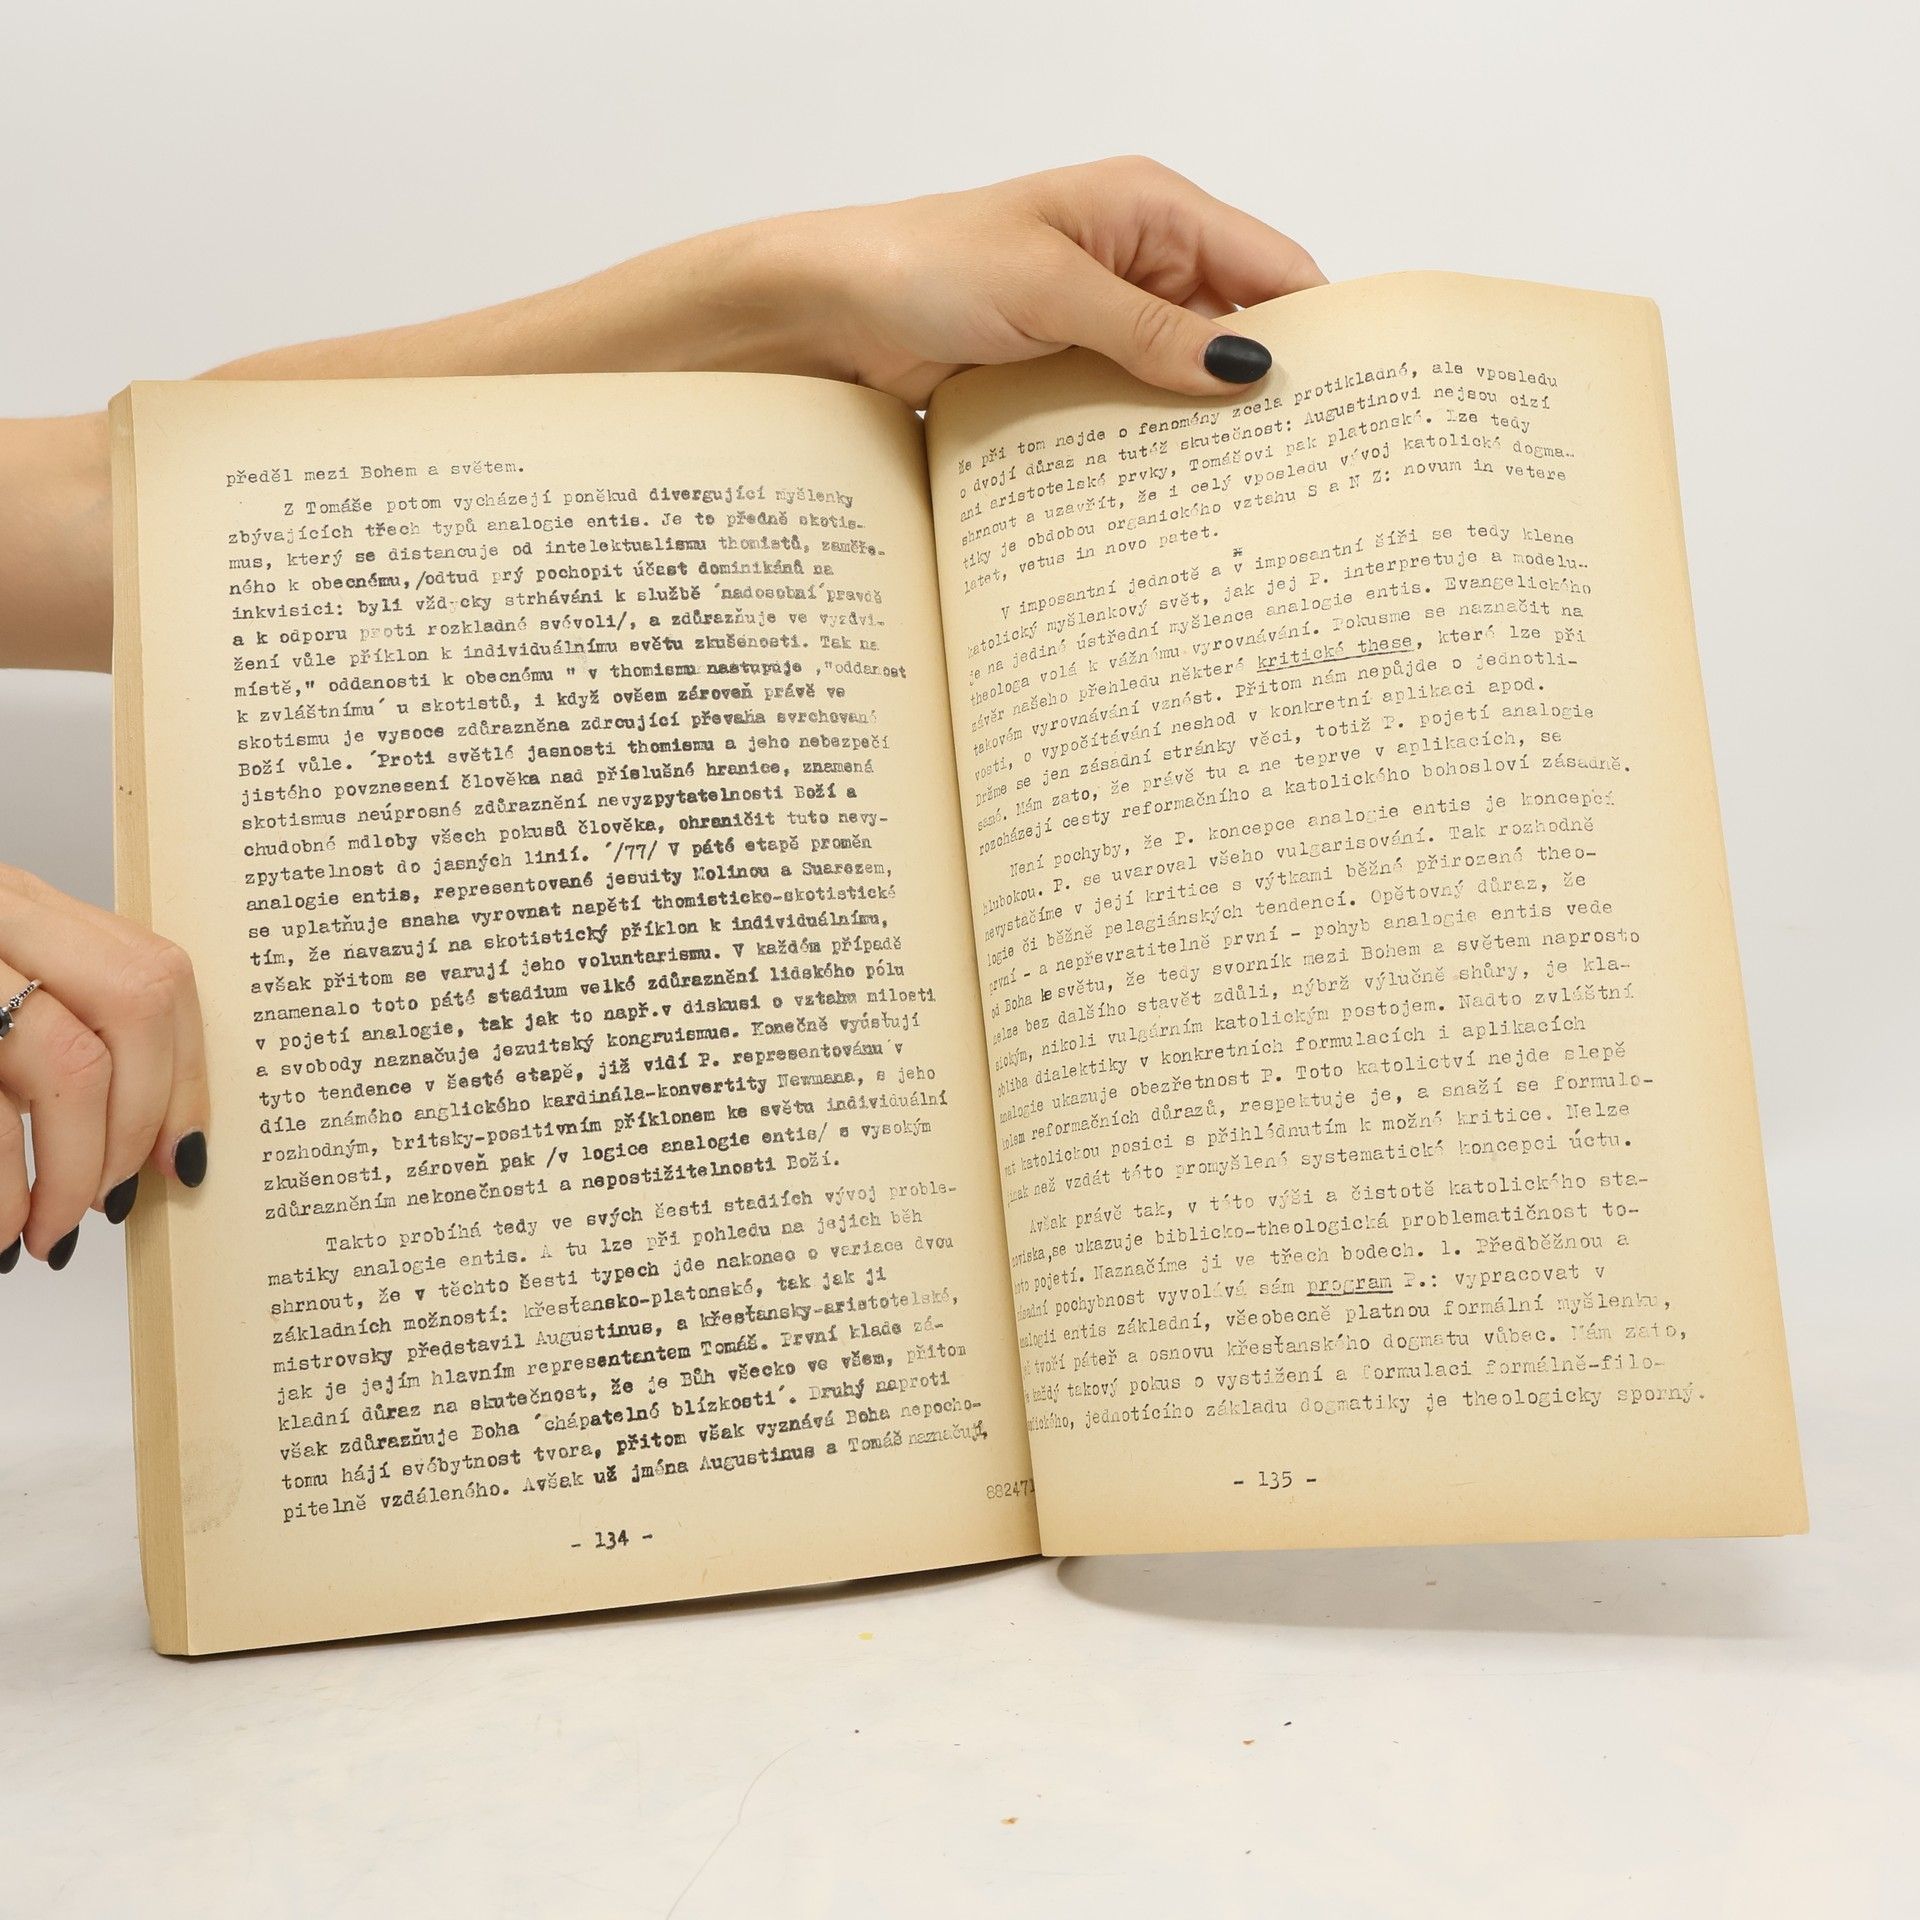 předěl mezi Bohem a světem.
Z Tomáše potom vycházejí poněkud divergující myšlenky
zbývajících třech typů analogie entis. Je to předně skotis-
mus, který se distancuje od intelektualismu thomistů, zaměře-
ného k obecnému,/odtud prý pochopit účast dominikánů na
inkvisici: byli vždycky strháváni k službě ´nadosobní´pravdě
a k odporu proti rozkladné svévoli/, a zdůrazňuje ve vyzdvi-
žení vůle příklon k individuálnímu světu zkušenosti. Tak na
místě," oddanosti k obecnému " v thomismu nastupuje ,"oddanost
k zvláštnímu´ u skotistů, i když ovšem zároveň právě ve
skotismu je vysoce zdůrazněna zdrcující převaha svrchované
Boží vůle. ´Proti světlé jasnosti thomismu a jeho nebezpečí
jistého povznesení člověka nad příslušné hranice, znamená
skotismus neúprosné zdůraznění nevyzpytatelnosti Boží a
chudobné mdloby všech pokusů člověka, ohraničit tuto nevy-
zpytatelnost do jasných linií. ´/77/ V páté etapě proměn
analogie entis, representované jesuity Molinou a Suarezem,
se uplatňuje snaha vyrovnat napětí thomisticko-skotistické
tím, že navazují na skotistický příklon k individuálnímu,
avšak přitom se varují jeho voluntarismu. V každém případě
znamenalo toto páté stadium velké zdůraznění lidského pólu
v pojetí analogie, tak jak to např.v diskusi o vztahu milosti
a svobody naznačuje jezuitský kongruismus. Konečně vyúsťují
tyto tendence v šesté etapě, již vidí P. representovánu v
díle známého anglického kardinála-konvertity Newmana, s jeho
rozhodným, britsky-positivním příklonem ke světu individuální
zkušenosti, zároveň pak /v logice analogie entis/ s vysokým
zdůrazněním nekonečnosti a nepostižitelnosti Boží.
Takto probíhá tedy ve svých šesti stadiích vývoj proble-
matiky analogie entis. A tu lze při pohledu na jejich běh
shrnout, že v těchto šesti typech jde nakonec o variace dvou
základních možností: křesťansko-platonské, tak jak ji
mistrovsky představil Augustinus, a křesťansky-aristotelské,
jak je jejím hlavním representantem Tomáš. První klade zá-
kladní důraz na skutečnost, že je Bůh všecko ve všem, přitom
však zdůrazňuje Boha ´chápatelné blízkosti´. Druhý naproti
tomu hájí svébytnost tvora, přitom však vyznává Boha nepocho-
pitelně vzdáleného. Avšak už jména Augustinus a Tomáš naznačují,
- 134 -
88247
že při tom nejde o fenomény zcela protikladné, ale vposledu
o dvojí důraz na tutéž skutečnost: Augustinovi nejsou cizí
ani aristotelské prvky, Tomášovi pak platonské. Lze tedy
shrnout a uzavřít, že i celý vposledu vývoj katolické dogma-
tiky je obdobou organického vztahu S a N Z: novum in vetere
latet, vetus in novo patet.
V imposantní jednotě a v imposantní šíři se tedy klene
katolický myšlenkový svět, jak jej P. interpretuje a modelu-
je na jediné ústřední myšlence analogie entis. Evangelického
theologa volá k vážnému vyrovnávání. Pokusme se naznačit na
závěr našeho přehledu některé kritické these, které lze při
takovém vyrovnávání vznést. Přitom nám nepůjde o jednotli-
vosti, o vypočítávání neshod v konkretní aplikaci apod.
Držme se jen zásadní stránky věci, totiž P. pojetí analogie
samé. Mám zato, že právě tu a ne teprve v aplikacích, se
rozcházejí cesty reformačního a katolického bohosloví zásadně.
Není pochyby, že P. koncepce analogie entis je koncepcí
hlubokou. P. se uvaroval všeho vulgarisování. Tak rozhodně
nevystačíme v její kritice s výtkami běžné přirozené theo-
logie či běžně pelagiánských tendencí. Opětovný důraz, že
první - a nepřevratitelně první - pohyb analogie entis vede
od Boha ke světu, že tedy svorník mezi Bohem a světem naprosto
nelze bez dalšího stavět zdůli, nýbrž výlučně shůry, je kla-
sickým, nikoli vulgárním katolickým postojem. Nadto zvláštní
obliba dialektiky v konkretních formulacích i aplikacích
analogie ukazuje obezřetnost P. Toto katolictví nejde slepě
kolem reformačních důrazů, respektuje je, a snaží se formulo-
vat katolickou posici s přihlédnutím k možné kritice. Nelze
jinak než vzdát této promyšlené systematické koncepci úctu.
Avšak právě tak, v této výši a čistotě katolického sta-
noviska,se ukazuje biblicko-theologická problematičnost to-
hoto pojetí. Naznačíme ji ve třech bodech. 1. Předběžnou a
zásadní pochybnost vyvolává sám program P.: vypracovat v
analogii entis základní, všeobecně platnou formální myšlenku,
jež tvoří páteř a osnovu křesťanského dogmatu vůbec. Mám zato,
že každý takový pokus o vystižení a formulaci formálně-filo-
sofického, jednotícího základu dogmatiky je theologicky sporný.
- 135 -